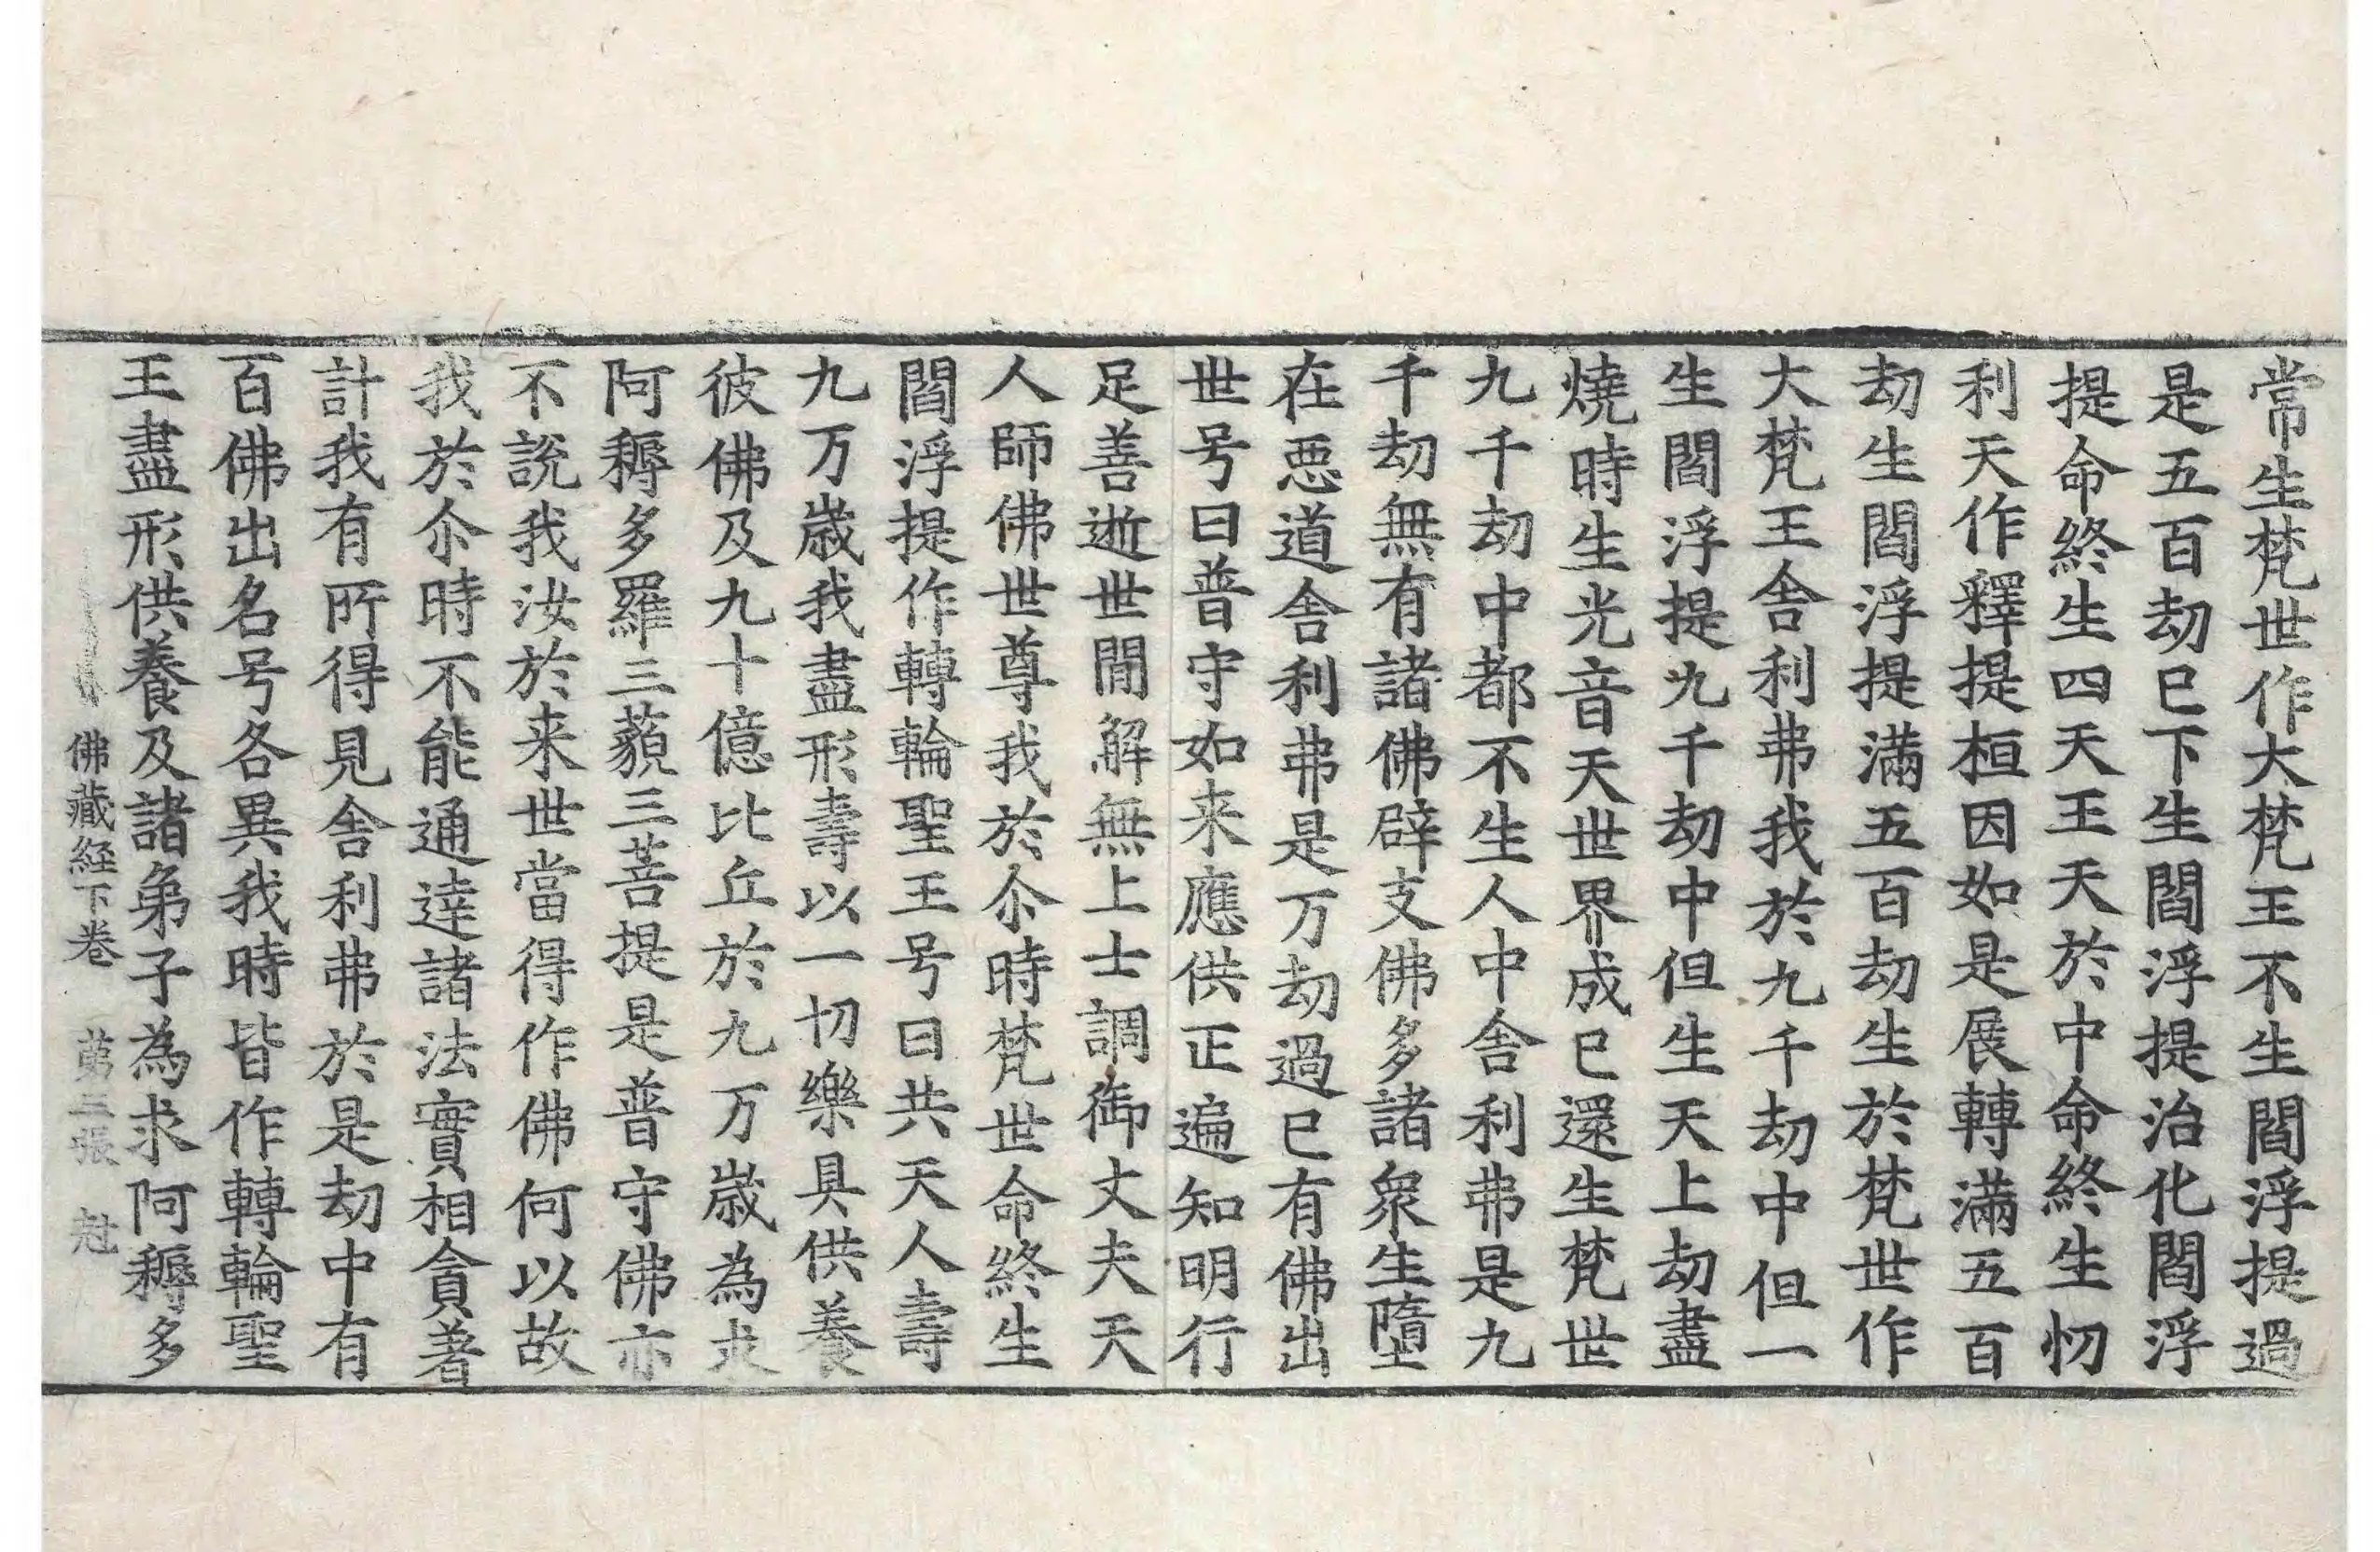 常生梵世作大梵王不生閻浮提過
是五百劫已下生閻浮提治化閻浮
提命終生四天王天於中命終生忉
利天作釋提桓因如是展轉滿五百
劫生閻浮提滿五百劫生於梵世作
大梵王舍利弗我於九千劫中但一
生閻浮提九千劫中但生天上劫盡
燒時生光音天世界成已還生梵世
九千劫中都不生人中舍利弗是九
千劫無有諸佛辟支佛多諸衆生墮
在惡道舍利弗是万劫過已有佛出
世号曰普守如来應供正遍知明行
足善逝世間解無上士調御丈夫天
人師佛世尊我於尒時梵世命終生
閻浮提作轉輪聖王号曰共天人壽
九万歳我盡形壽以一切樂具供養
彼佛及九十億比丘於九万歳為求
阿耨多羅三藐三菩提是普守佛亦
不說我汝於来世當得作佛何以故
我於尒時不能通達諸法實相貪著
計我有所得見舍利弗於是劫中有
百佛出名号各異我時皆作轉輪聖
王盡形供養及諸弟子為求阿耨多
佛藏経下卷　第三張